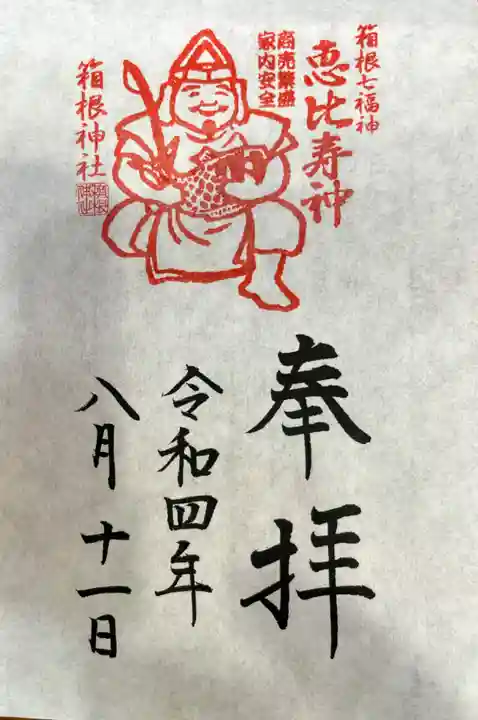 箱根七福神
恵比寿神
商売繁盛
家内安全
箱根神社
奉拝
令和四年
八月十一日